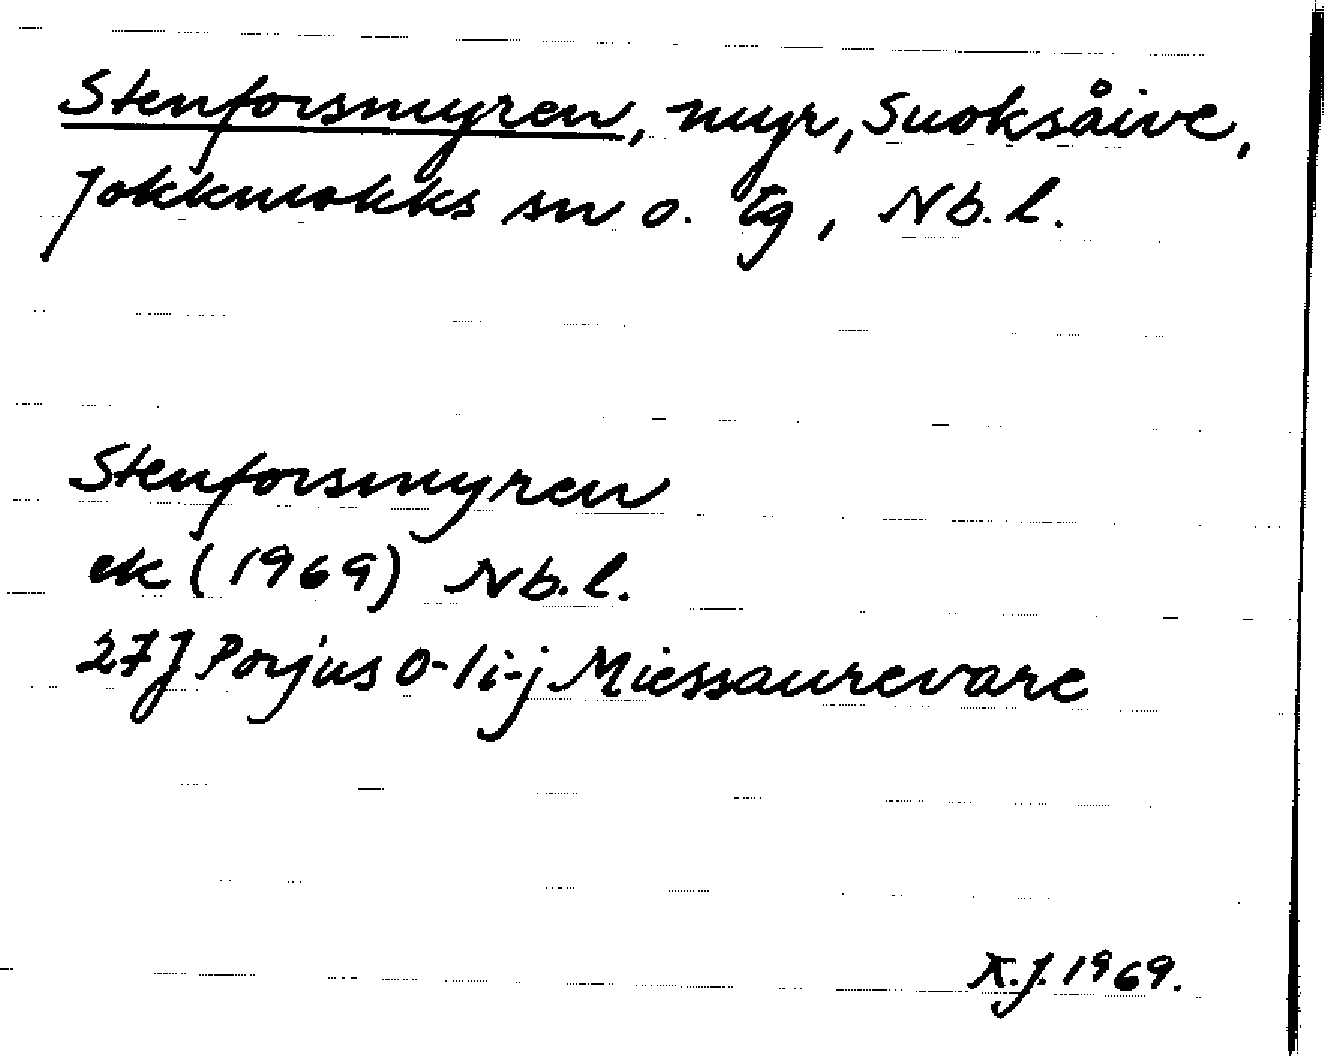 Stenforsmyren, myr, Suoksåive,
Jokkmokks sn o. tg, Nb. l.
Stenforsmyren
ek (1969) Nb. l.
27J Porjus 0-1i-j Miessaurevare
K.J. 1969.